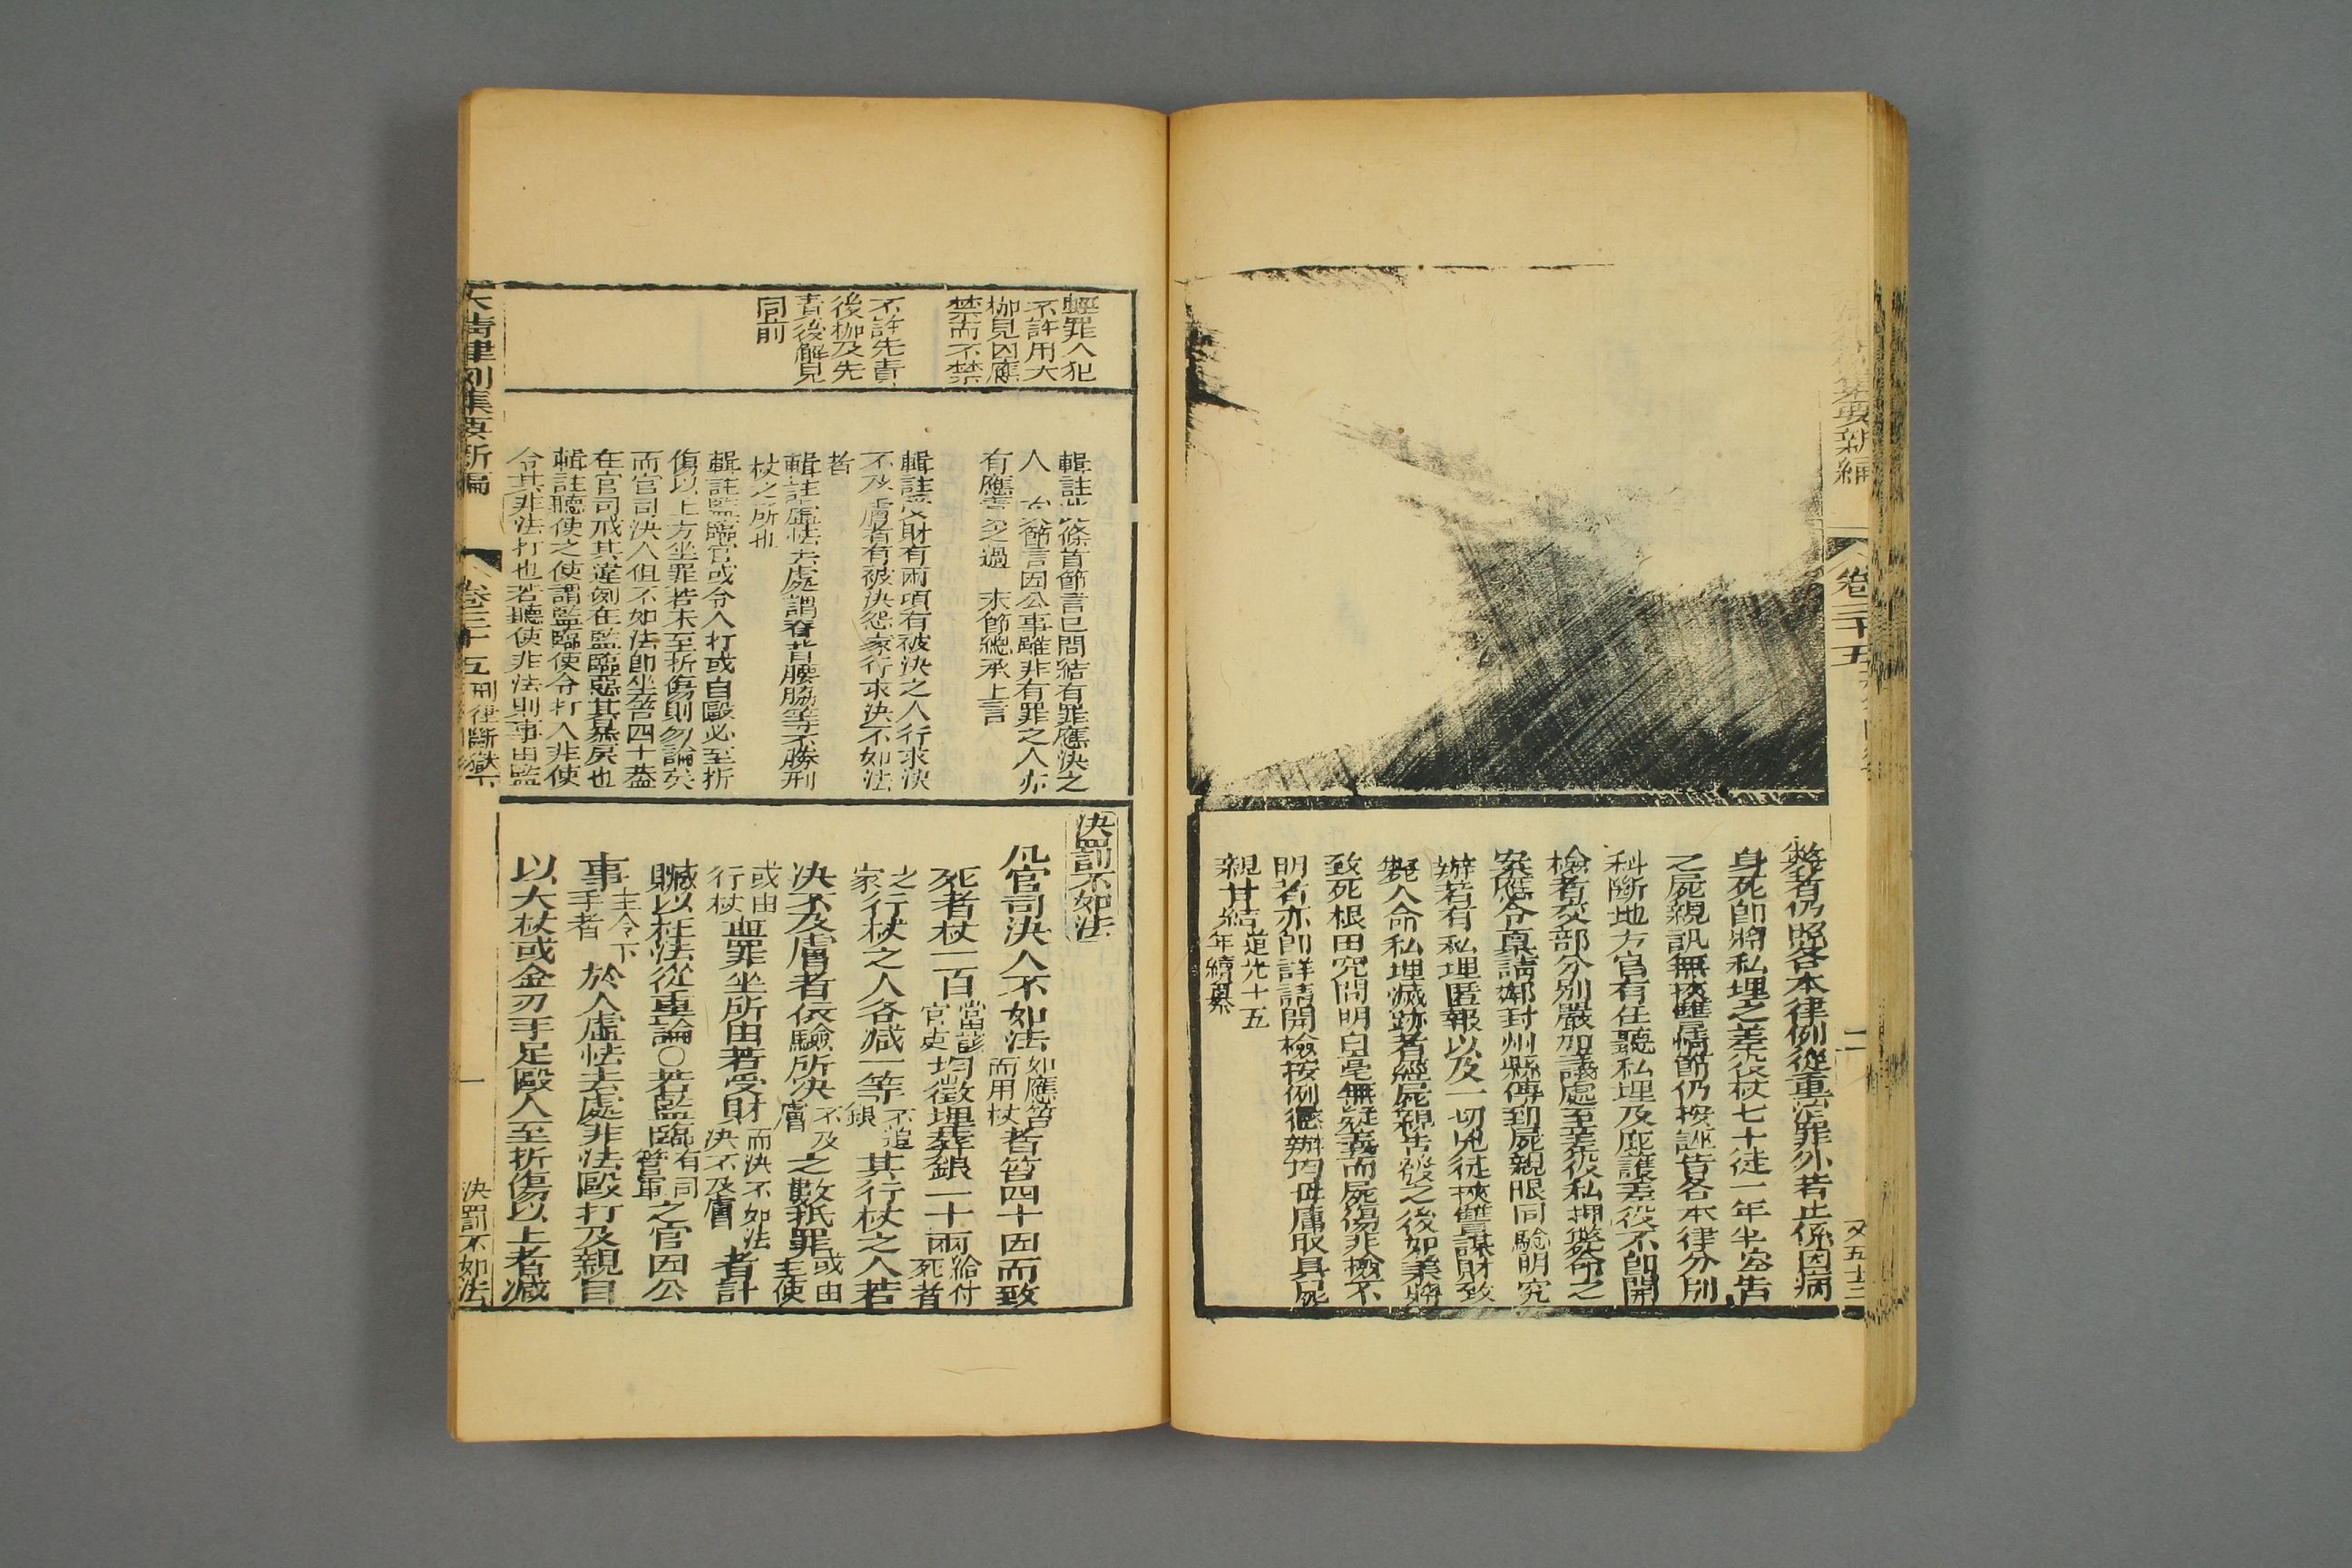 斃者仍照各本律例從重治罪外若止係因病
身死卽將私埋之差役杖七十徒一年半控告
之屍親訊無挾讐情節仍按誣告各本律分別
科斷地方官有任聽私埋及庇護差役不卽開
檢者交部分別嚴加議處至差役私押斃命之
案應令稟請鄰封州縣傳到屍親眼同驗明究
辦若有私埋匿報以及一切兇徒挾讐謀財致
斃人命私埋滅跡者經屍親告發之後如業將
致死根由究問明白毫無疑義而屍傷非檢不
明者亦卽詳請開檢按例懲辦均毋庸取具屍
親甘結道光十五
年續纂
集要新編
卷三十五
又五十三
輕罪人犯
不許用大
枷見囚應
禁而不禁
不許先責
後枷及先
責後解見
同前
輯註此條首節言已問結有罪應決之
人 節言因公事雖非有罪之人亦
有應責之過 末節總承上言
輯註受財有兩項有被決之人行求決
不及膚者有被決怨家行求決不如法
者
輯註虛怯去處謂脊背腰脇等不勝刑
杖之所也
輯註監臨官或令人打或自毆必至折
傷以上方坐罪若未至折傷則勿論矣
而官司決人但不如法卽坐笞四十蓋
在官司戒其違例在監臨惡其暴戾也
輯註聽使之使謂監臨使令打人非使
令其非法打也若聽使非法則事由監
決罰不如法
凡官司決人不如法如應笞
而用杖者笞四十因而致
死者杖一百當該
官吏均徵埋葬銀一十兩給付
死者
之
家行杖之人各減一等不追
銀其行杖之人若
決不及膚者依驗所決不及
膚之數抵罪或由
主使
或由
行杖並罪坐所由若受財而決不如法
決不及膚者計
贓以枉法從重論○若監臨有司
管軍之官因公
事主令下
手者於人虛怯去處非法毆打及親自
以大杖或金刃手足毆人至折傷以上者減
大清律例集要新編
卷三十五 刑律斷獄下
一
決罰不如法